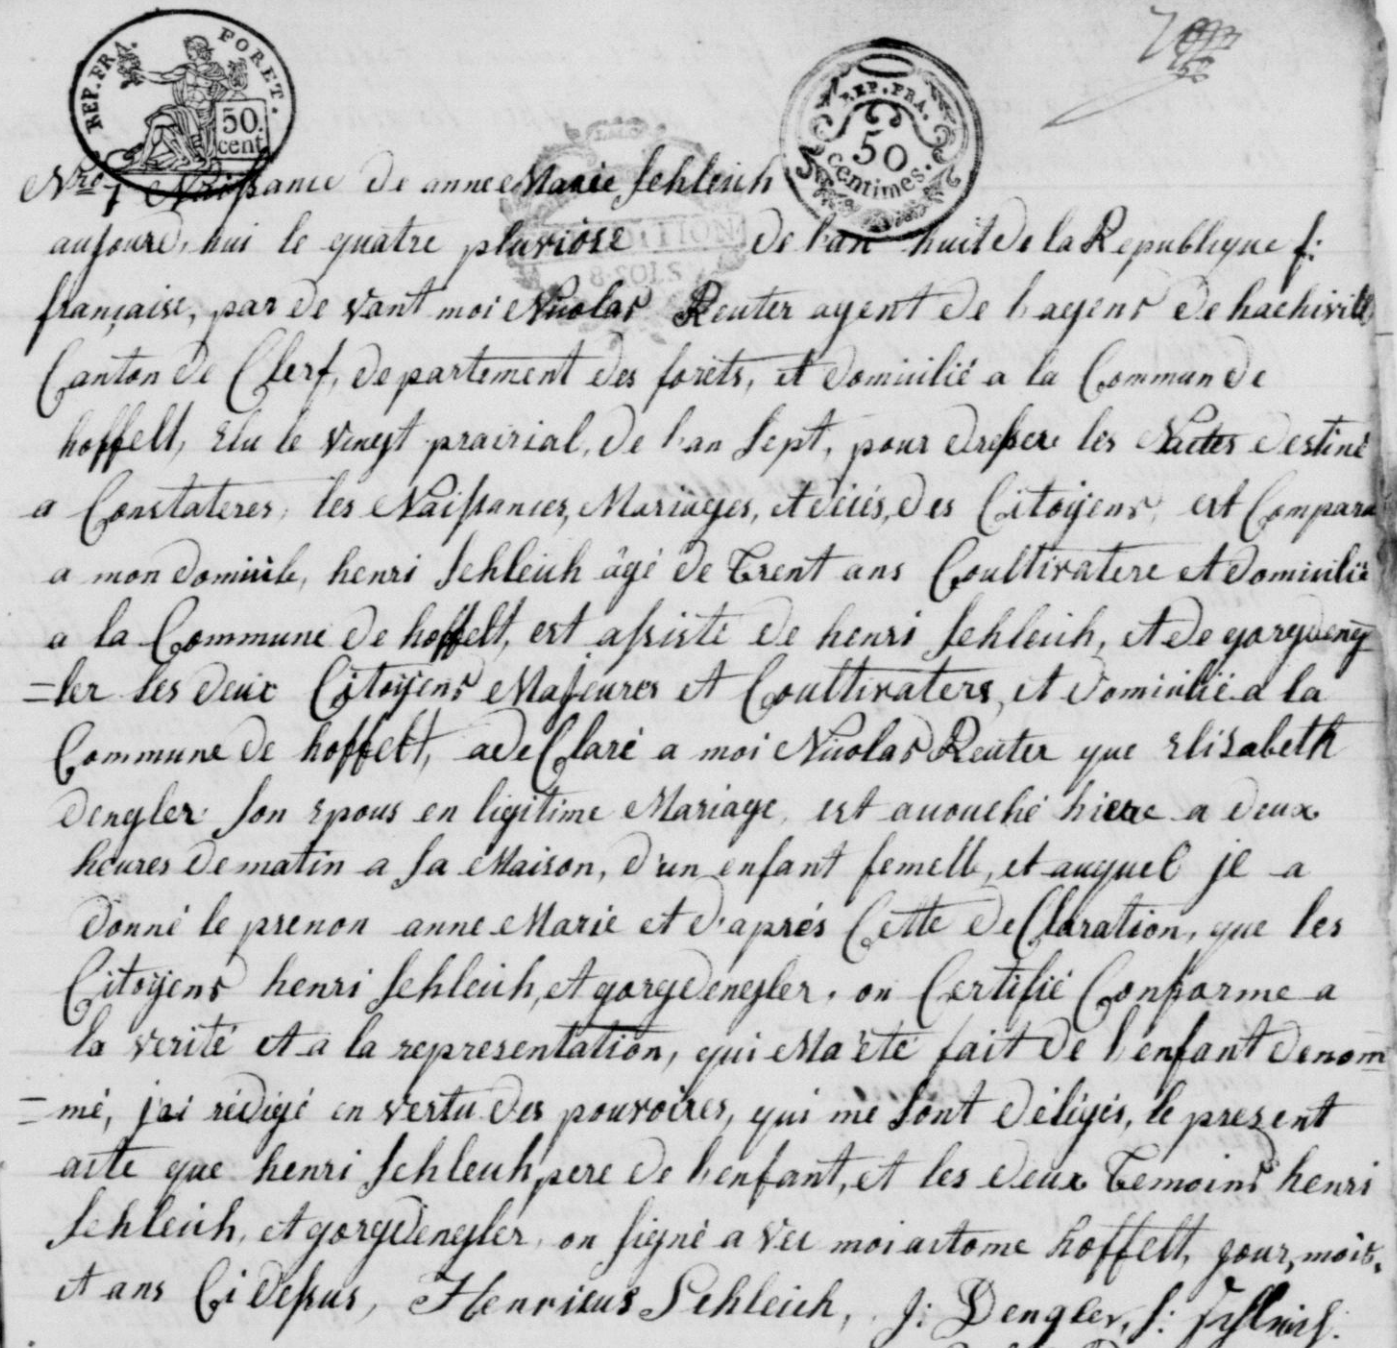 REP. FRA. FORET.
50 cent
REP. FRA.
50
centimes.
Nro 7 Naissance de anne Marie Schleich
aujourd, hui le quatre pluviose de l'an huit de la Republique f:
française, par de vant moi Nicolas Reuter agent de l agens de hachiville
Canton de Clerf, departement des forêts, et domicilié a la Commun de
hoffelt, elu le vingt prairial, de l'an Sept, pour dresser les Nactes destiné
a Constateres, les Naissances, Mariages, et décés, des Citoyens, est Compara
a mon domicile, henri Schleich âgé de Trent ans Coultivatere et domicilié
a la Commune de hoffelt, est assisté de henri Schleich, et de gorge deng
=ler les deux Citoyens Majeures et Coultivaters, et domicilié a la
Commune de hoffelt, a de Claré a moi Nicolas Reuter que Elisabeth
dengler son epous en legitime Mariage, est acouché hiere a deux
heures de matin a sa Maison, d'un enfant femell, et auquel je a
donné le prenon anne Marie et d'aprés Cette de Claration, que les
Citoyens henri Schleich, et gorge dengler, on Certifié Conforme a
la verité et a la representation, qui Ma été fait de l'enfant denom
=mé, j'ai rédigé en vertu des pouvoires, qui me sont délégés, le present
acte que henri Schleich pere de l'enfant, et les deux Temoins henri
Schleich, et gorge dengler, on signé a vec moi actome hoffelt, jour, mois,
et ans Ci dessus, Henricus Schleich, J: Dengler, S: Schleich.